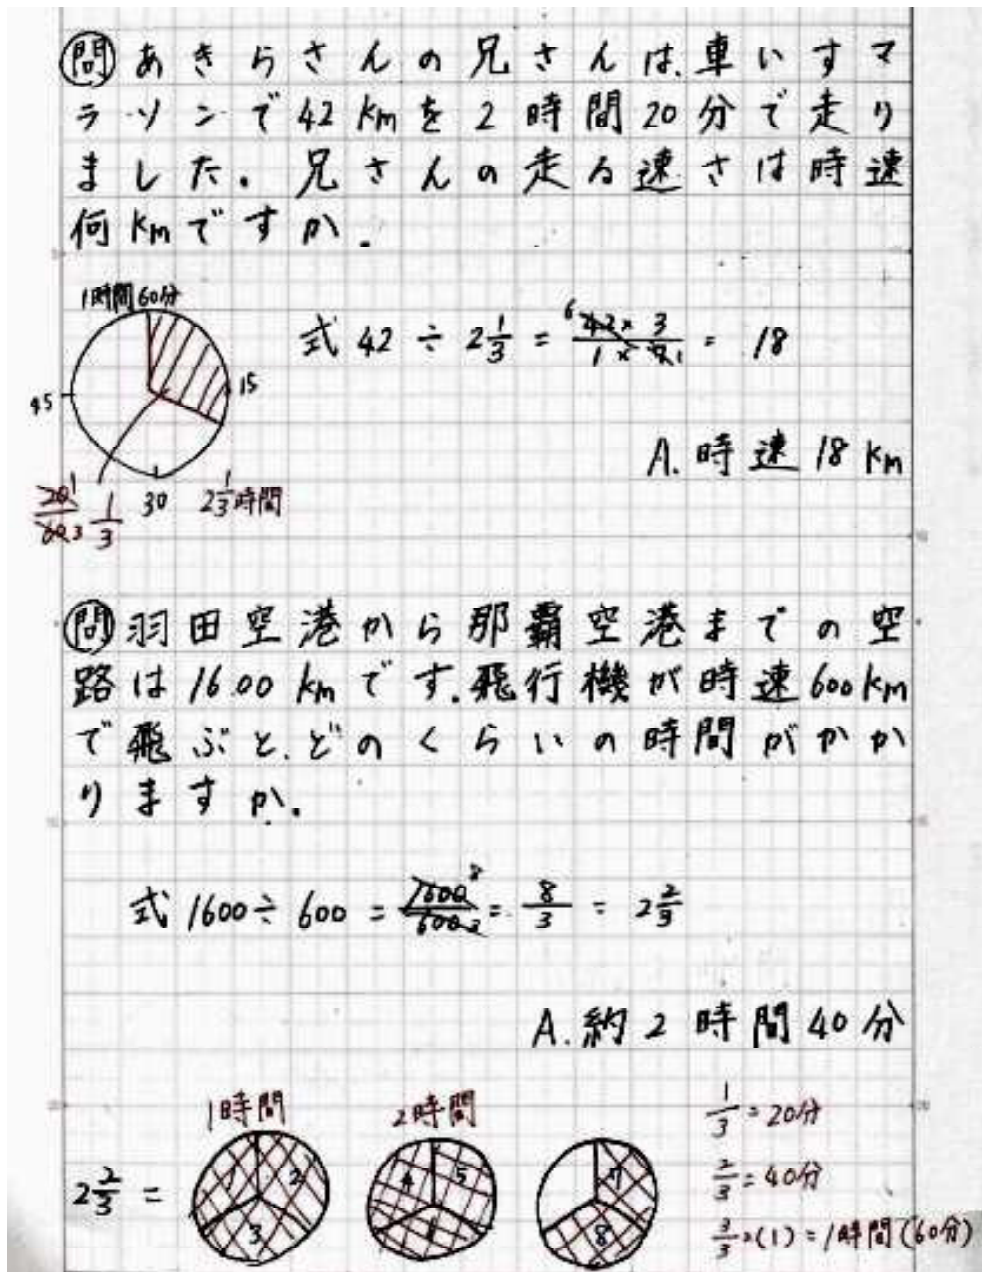 問 あきらさんの兄さんは、車いすマ
ラソンで42kmを2時間20分で走り
ました。兄さんの走る速さは時速
何kmですか。
1時間60分
15
45
30
20/60 1/3
2 1/3時間
式 42÷2 1/3=42×3/1×7=18
A.時速18km
問 羽田空港から那覇空港までの空
路は1600kmです。飛行機が時速600km
で飛ぶと、どのくらいの時間がかか
りますか。
式 1600÷600=1600/600=8/3=2 2/3
A.約2時間40分
1時間
2時間
2 2/3=
1 2 3
4 5
7 8
1/3=20分
2/3=40分
3/3=(1)=1時間(60分)